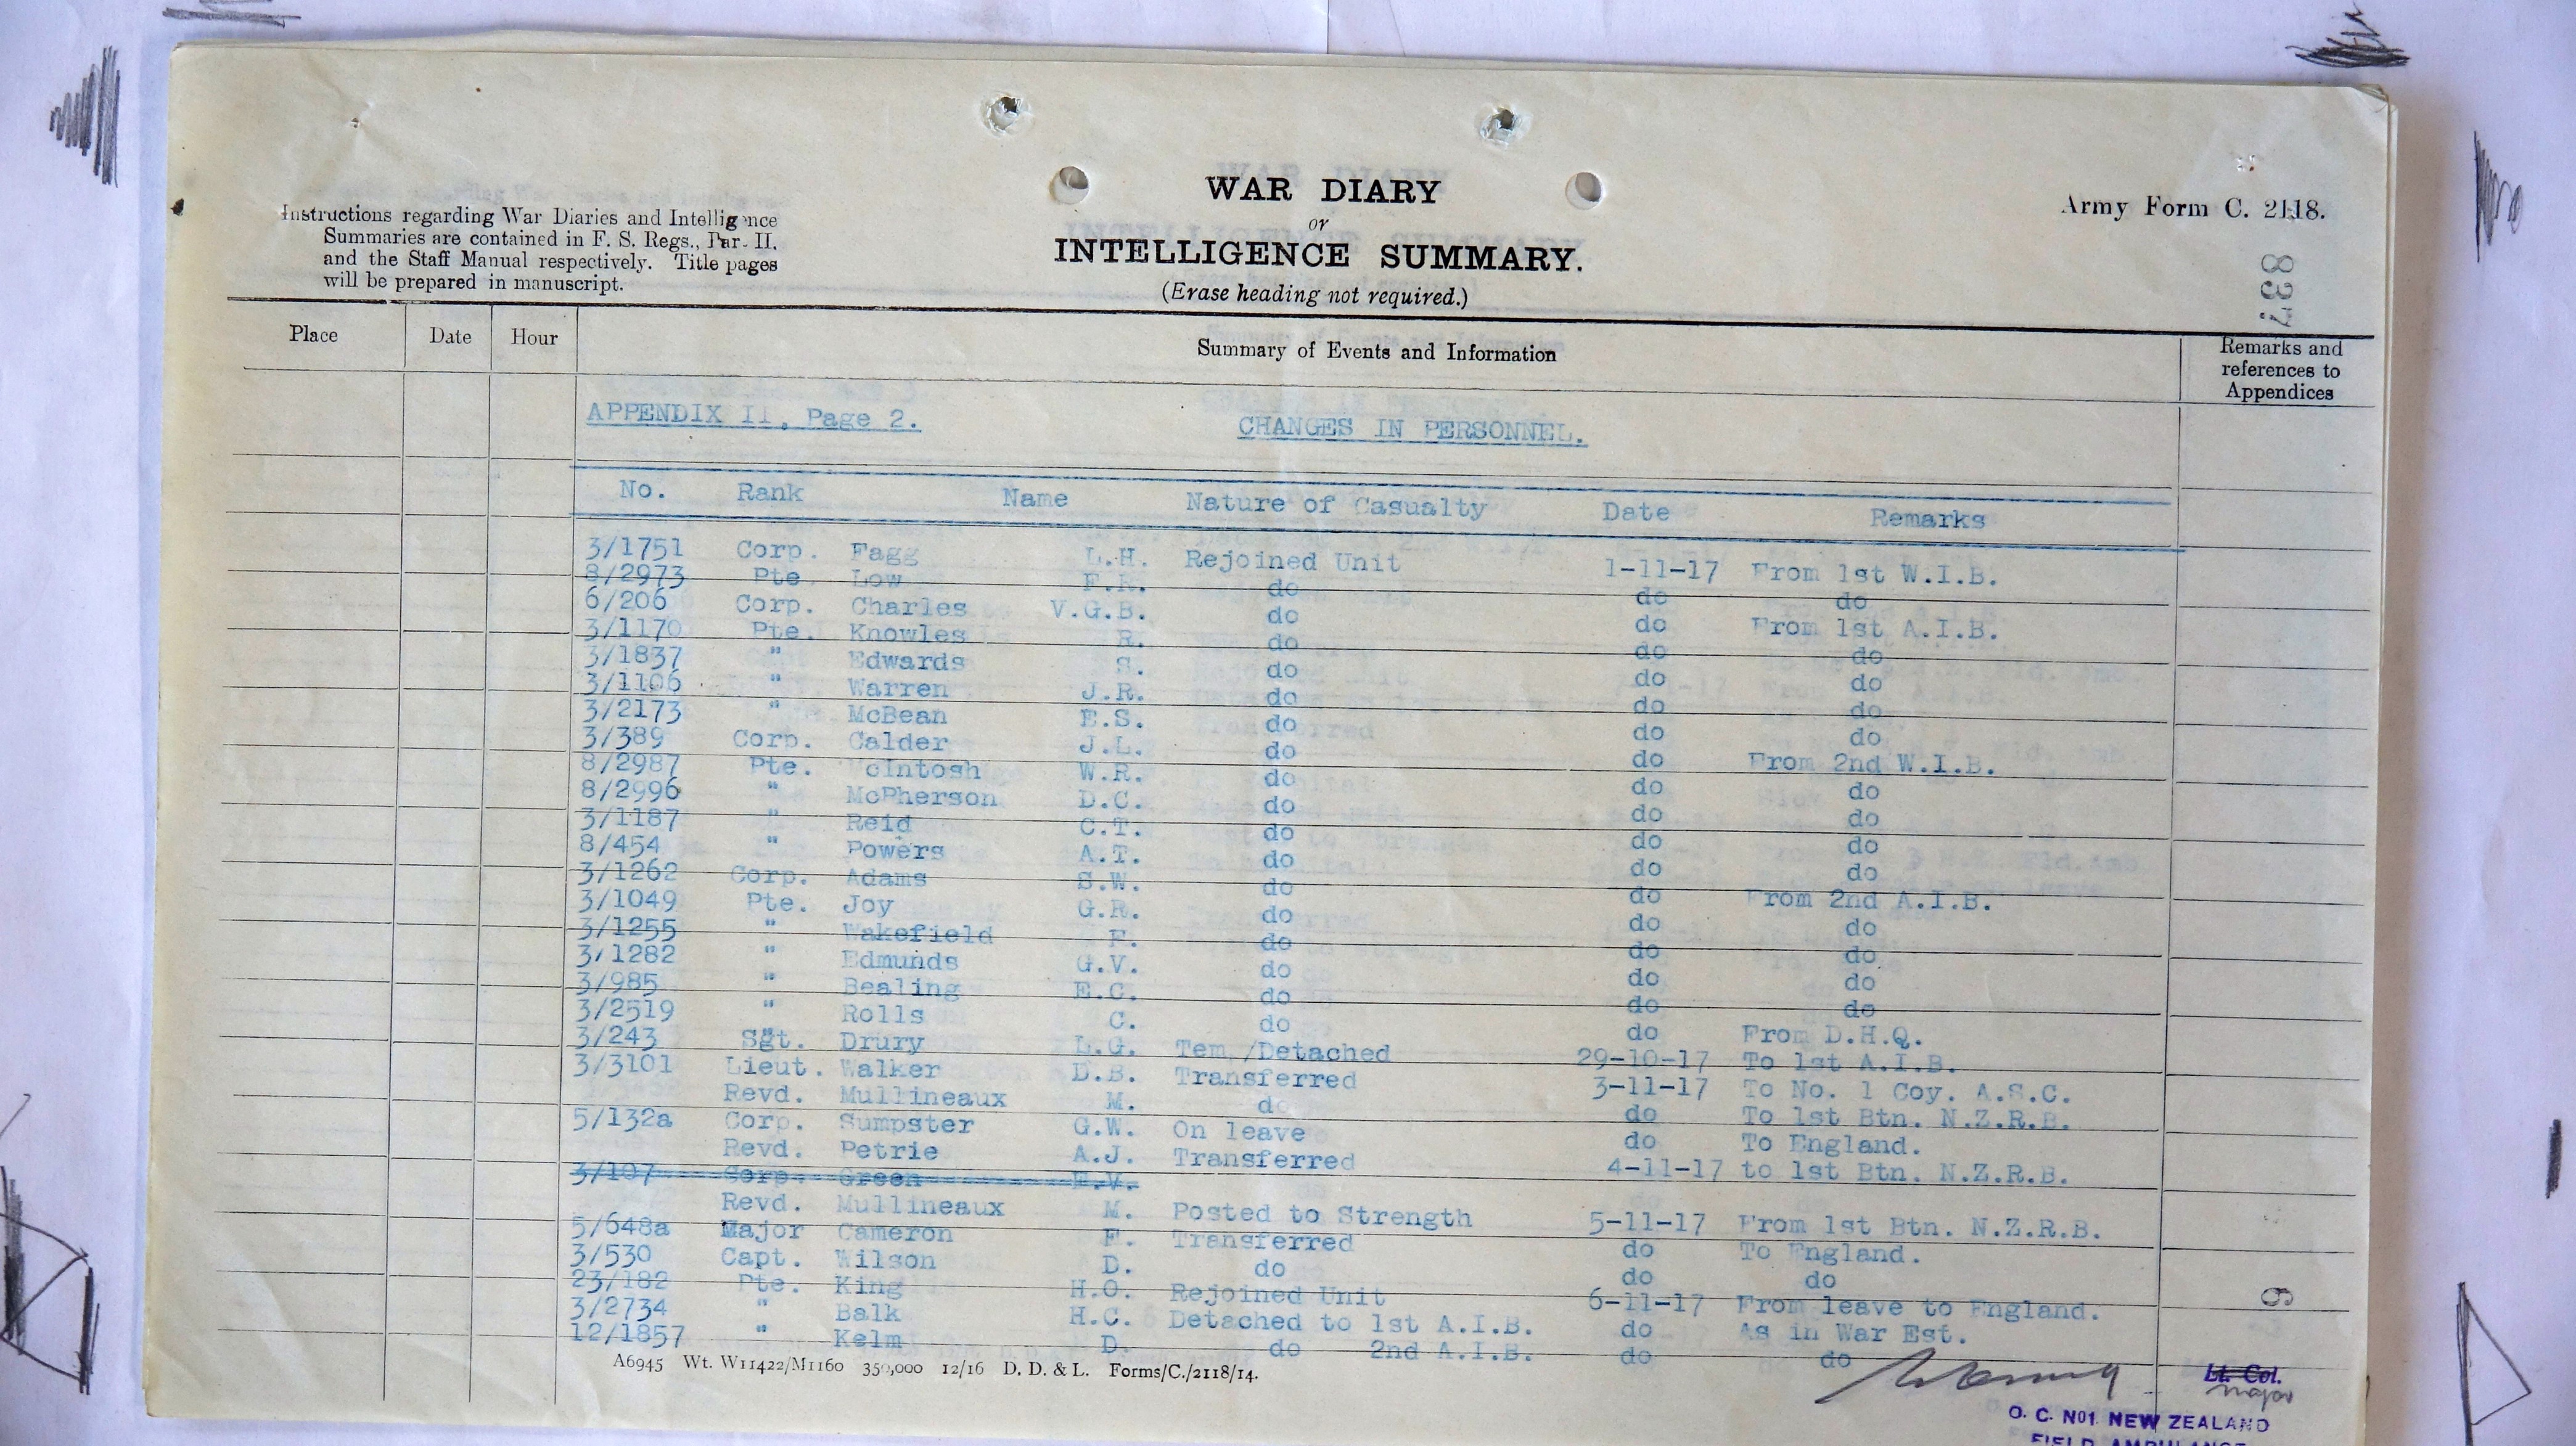 WAR DIARY
or
INTELLIGENCE SUMMARY.
(Erase heading not required.)
Instructions regarding War Diaries and Intelligence
Summaries are contained in F. S. Regs., Part II.
and the Staff Manual respectively. Title pages
will be prepared in manuscript.
Army Form C. 2118.
837
Place Date Hour Summary of Events and Information Remarks and references to Appendices
APPENDIX II, Page 2. CHANGES IN PERSONNEL.
No. Rank Name Nature of Casualty Date Remarks
3/1751 Corp. Fagg L.H. Rejoined Unit 1-11-17 From 1st W.I.B.
8/2973 Pte Low F.R. do do do
6/206 Corp. Charles V.G.B. do do From 1st A.I.B.
3/1170 Pte. Knowles R. do do do
3/1837 " Edwards S. do do do
3/1106 " Warren J.R. do do do
3/2173 " McBean E.S. do do do
3/389 Corp. Calder J.L. do do From 2nd W.I.B.
8/2987 Pte. McIntosh W.R. do do do
8/2996 " McPherson D.C. do do do
3/1187 " Reid C.T. do do do
8/454 " Powers A.T. do do do
3/1262 Corp. Adams S.W. do do From 2nd A.I.B.
3/1049 Pte. Joy G.R. do do do
3/1255 " Wakefield F. do do do
3/1282 " Edmunds G.V. do do do
3/985 " Bealing E.C. do do do
3/2519 " Rolls C. do do From D.H.Q.
3/243 Sgt. Drury L.G. Tem./Detached 29-10-17 To 1st A.I.B.
3/3101 Lieut. Walker D.B. Transferred 3-11-17 To No. 1 Coy. A.S.C.
Revd. Mullineaux M. do do To 1st Btn. N.Z.R.B.
5/132a Corp. Sumpster G.W. On leave do To England.
Revd. Petrie A.J. Transferred 4-11-17 to 1st Btn. N.Z.R.B.
3/107 Corp. Green E.V.
Revd. Mullineaux M. Posted to Strength 5-11-17 From 1st Btn. N.Z.R.B.
5/648a Major Cameron F. Transferred do To England.
3/530 Capt. Wilson D. do do do
23/182 Pte. King H.O. Rejoined Unit 6-11-17 From leave to England.
3/2734 " Balk H.C. Detached to 1st A.I.B. do As in War Est.
12/1857 " Kelm D. do 2nd A.I.B. do do
9
A6945 Wt. W11422/M1160 350,000 12/16 D. D. & L. Forms/C./2118/14.
Lt. Col.
Major
O. C. No1. NEW ZEALAND
FIELD AMBULANCE